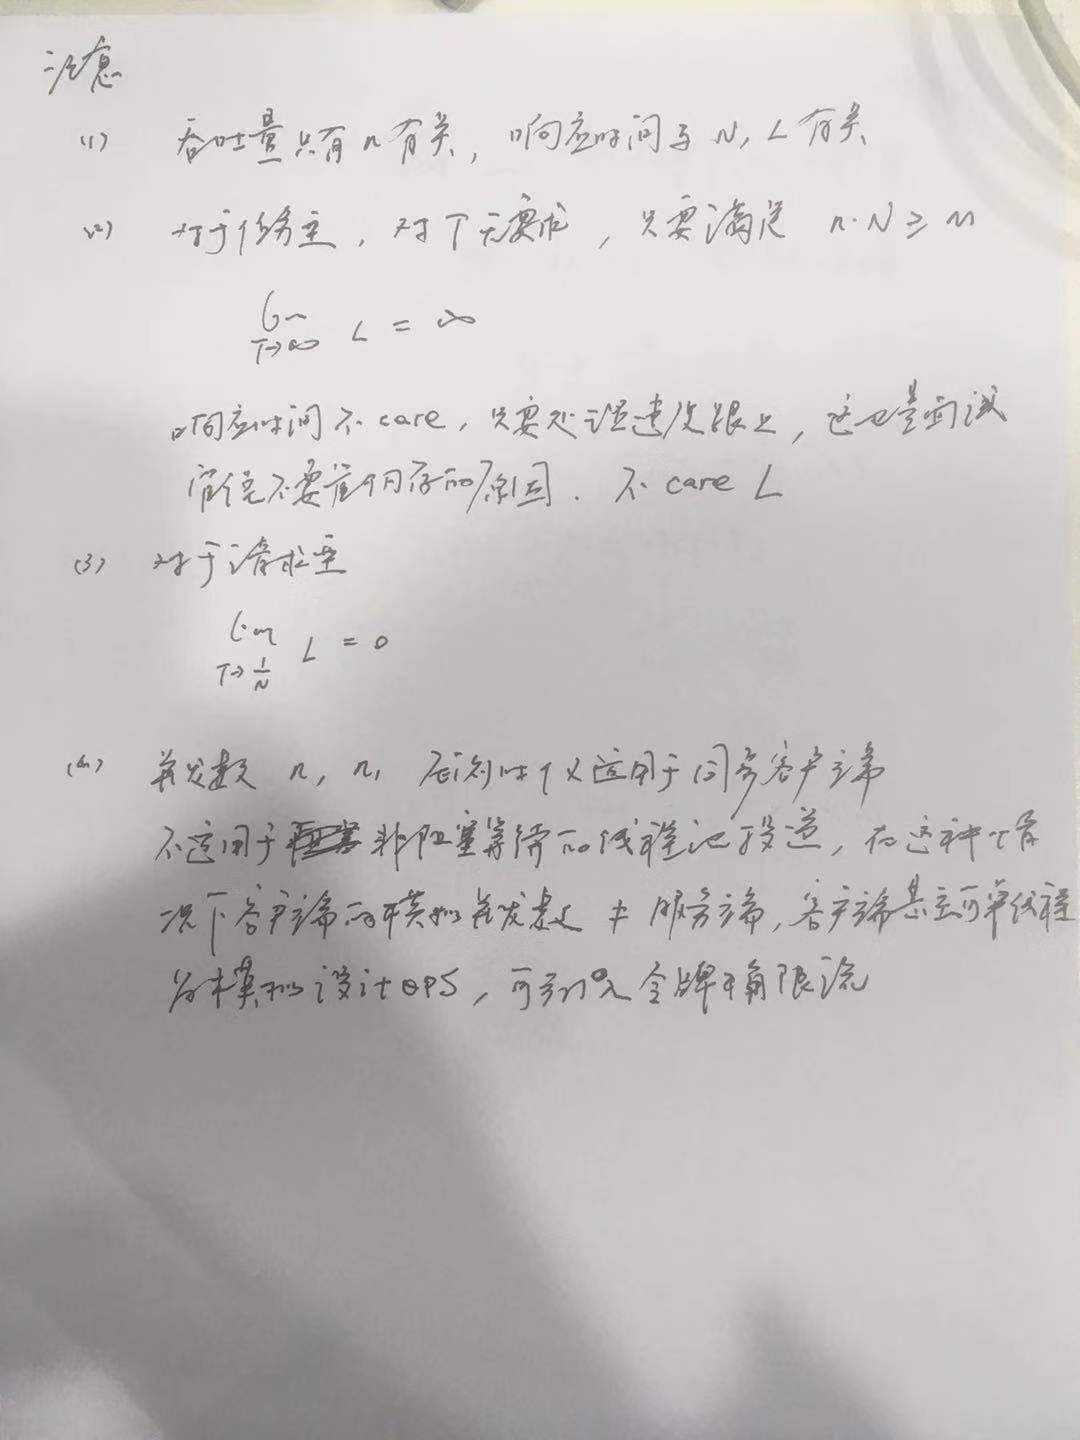 注意
(1) 吞吐量只有n有关, 响应时间与N, L有关
(2) 对于任务型, 对T无要求, 只要满足 n·N ≥ M
lim T→∞ L = ∞
响应时间不care, 只要处理速度跟上, 这也是面试
官说不要管内存的原因. 不care L
(3) 对于请求型
lim T→1/N L = 0
(4) 并发数 n, n, 压测时仅适用于同步客户端
不适用于非阻塞等待的线程池投递, 在这种情
况下客户端的模拟并发数 ≠ 服务端, 客户端甚至可单线程
去模拟设计QPS, 可引入令牌桶限流